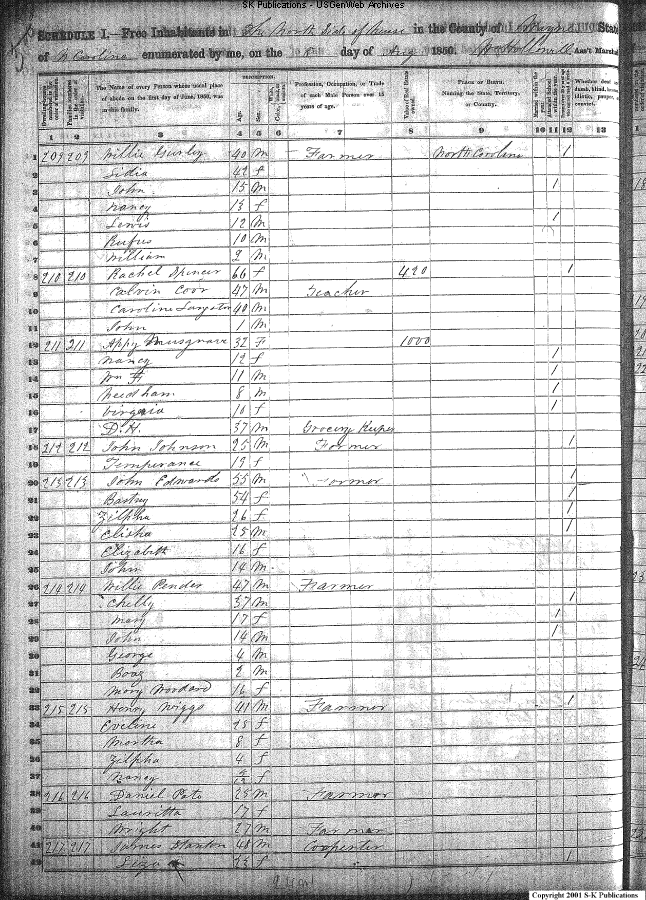 SK Publications - USGenWeb Archives
SCHEDULE I.—Free Inhabitants in The North Side of Neuse in the County of Wayne State
of N Carolina enumerated by me, on the day of Aug 1850. Ass't Marshal
DESCRIPTION.
The Name of every Person whose usual place of abode on the first day of June, 1850, was in this family.
Age.
Sex.
Profession, Occupation, or Trade of each Male Person over 15 years of age.
Value of Real Estate owned.
PLACE OF BIRTH. Naming the State, Territory, or Country.
Whether deaf and dumb, blind, insane, idiotic, pauper, or convict.
1 2 3 4 5 6 7 8 9 10 11 12 13
1 209 209 Willie Gurley 40 M Farmer North Carolina 1
2 Sidia 42 f
3 John 15 M 1
4 Nancy 13 f
5 Lewis 12 M 1
6 Rufus 10 M
7 William 2 M
8 210 210 Rachel Spencer 66 f 420 1
9 Calvin Coor 47 M Teacher
10 Caroline 40 M
11 John 1 M
12 211 211 Appy Musgrave 32 F 1000
13 Nancy 12 f 1
14 Wm F 11 M 1
15 Needham 8 M 1
16 Virginia 10 f 1
17 D.H. 37 M Grocery Keeper
18 212 212 John Johnson 25 M Farmer 1
19 Temperance 19 f
20 213 213 John Edwards 55 M Farmer 1
21 54 f 1
22 Zilpha 26 f 1
23 Elisha 25 M 1
24 Elizabeth 16 f
25 John 14 M
26 214 214 Willie Pender 47 M Farmer
27 Chelly 37 M 1
28 Mary 17 f 1
29 John 14 M 1
30 George 4 M
31 Boaz 2 M
32 Mary Woodard 16 f
33 215 215 Henry Wiggs 41 M Farmer 1
34 Eveline 25 f
35 Martha 8 f
36 Zilpha 4 f
37 Nancy f
38 216 216 Daniel Pate 25 M Farmer
39 Lauritta 17 f
40 Wright 27 M Farmer
41 217 217 Stanton 48 M Cooperter
42 Liza 23 f 1
Copyright 2001 S-K Publications